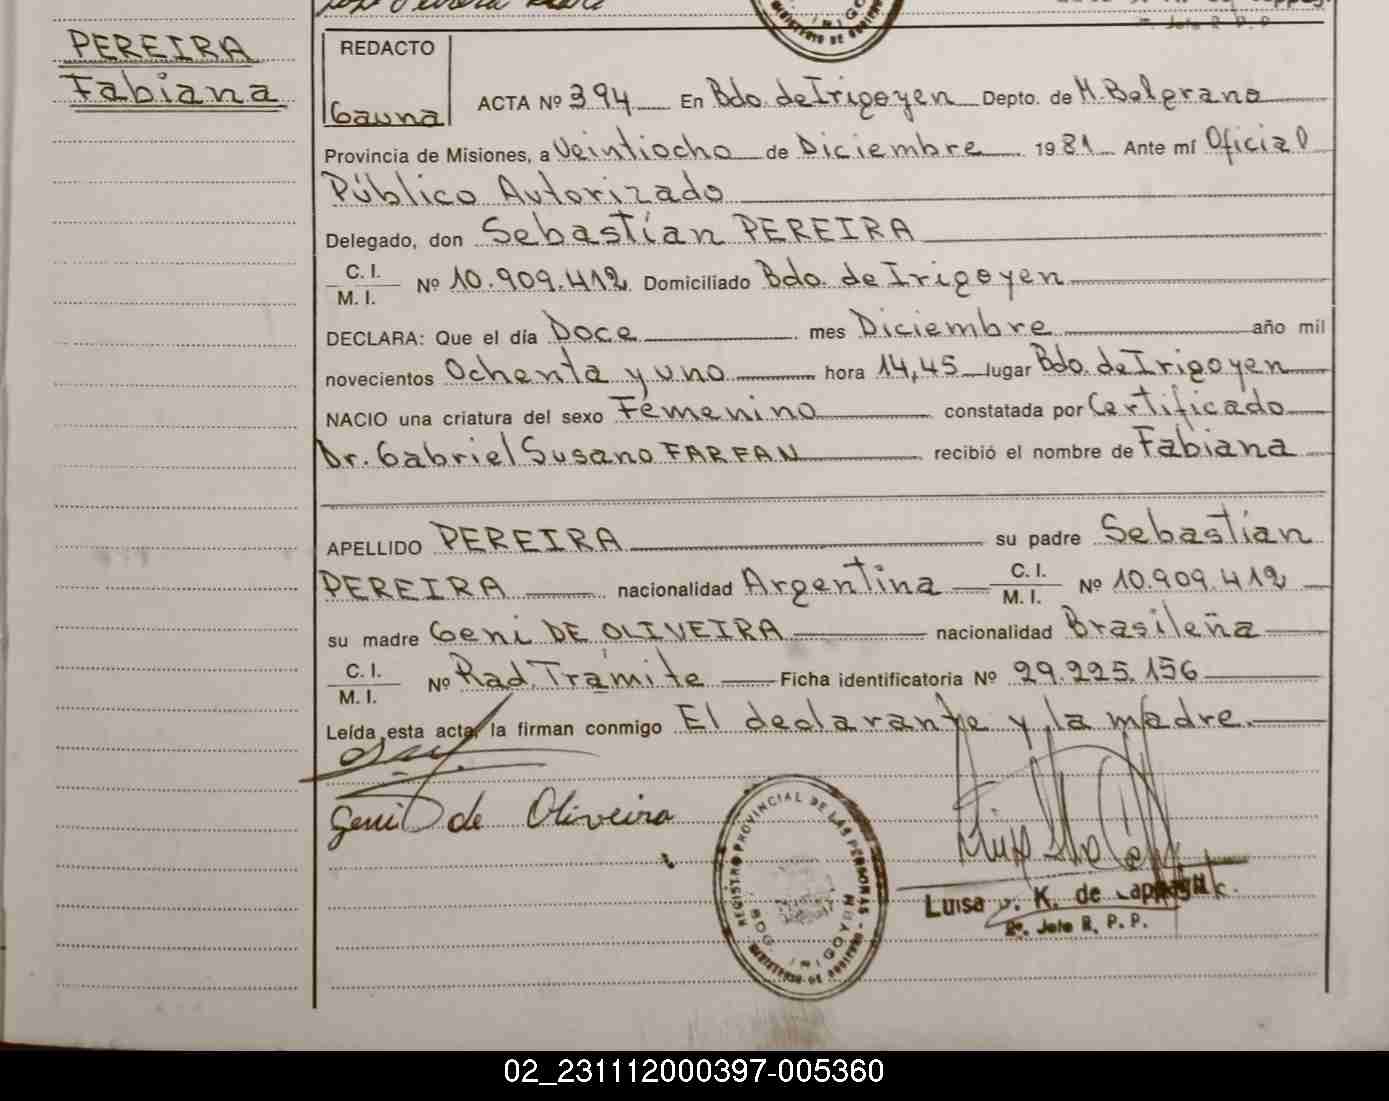 PEREIRA
Fabiana
REDACTO
Gauna
ACTA Nº 394 En Bdo. de Irigoyen Depto. de M. Belgrano
Provincia de Misiones, a Veintiocho de Diciembre 1981 Ante mí Oficial
Público Autorizado
Delegado, don Sebastían PEREIRA
C. I.
M. I. Nº 10.909.412 Domiciliado Bdo. de Irigoyen
DECLARA: Que el día Doce mes Diciembre año mil
novecientos Ochenta y uno hora 14,45 lugar Bdo. de Irigoyen
NACIO una criatura del sexo Femenino constatada por Certificado
Dr. Gabriel Susano FARFAN recibió el nombre de Fabiana
APELLIDO PEREIRA su padre Sebastían
PEREIRA nacionalidad Argentina C. I. M. I. Nº 10.909.412
su madre Geni DE OLIVEIRA nacionalidad Brasileña
C. I.
M. I. Nº Rad. Trámite Ficha identificatoria Nº 29.225.156
Leída esta acta, la firman conmigo El declarante y la madre.
Geni D de Oliveira
REGISTRO PROVINCIAL DE LAS PERSONAS
Luisa K. de
2º. Jefe R. P. P.
02_231112000397-005360